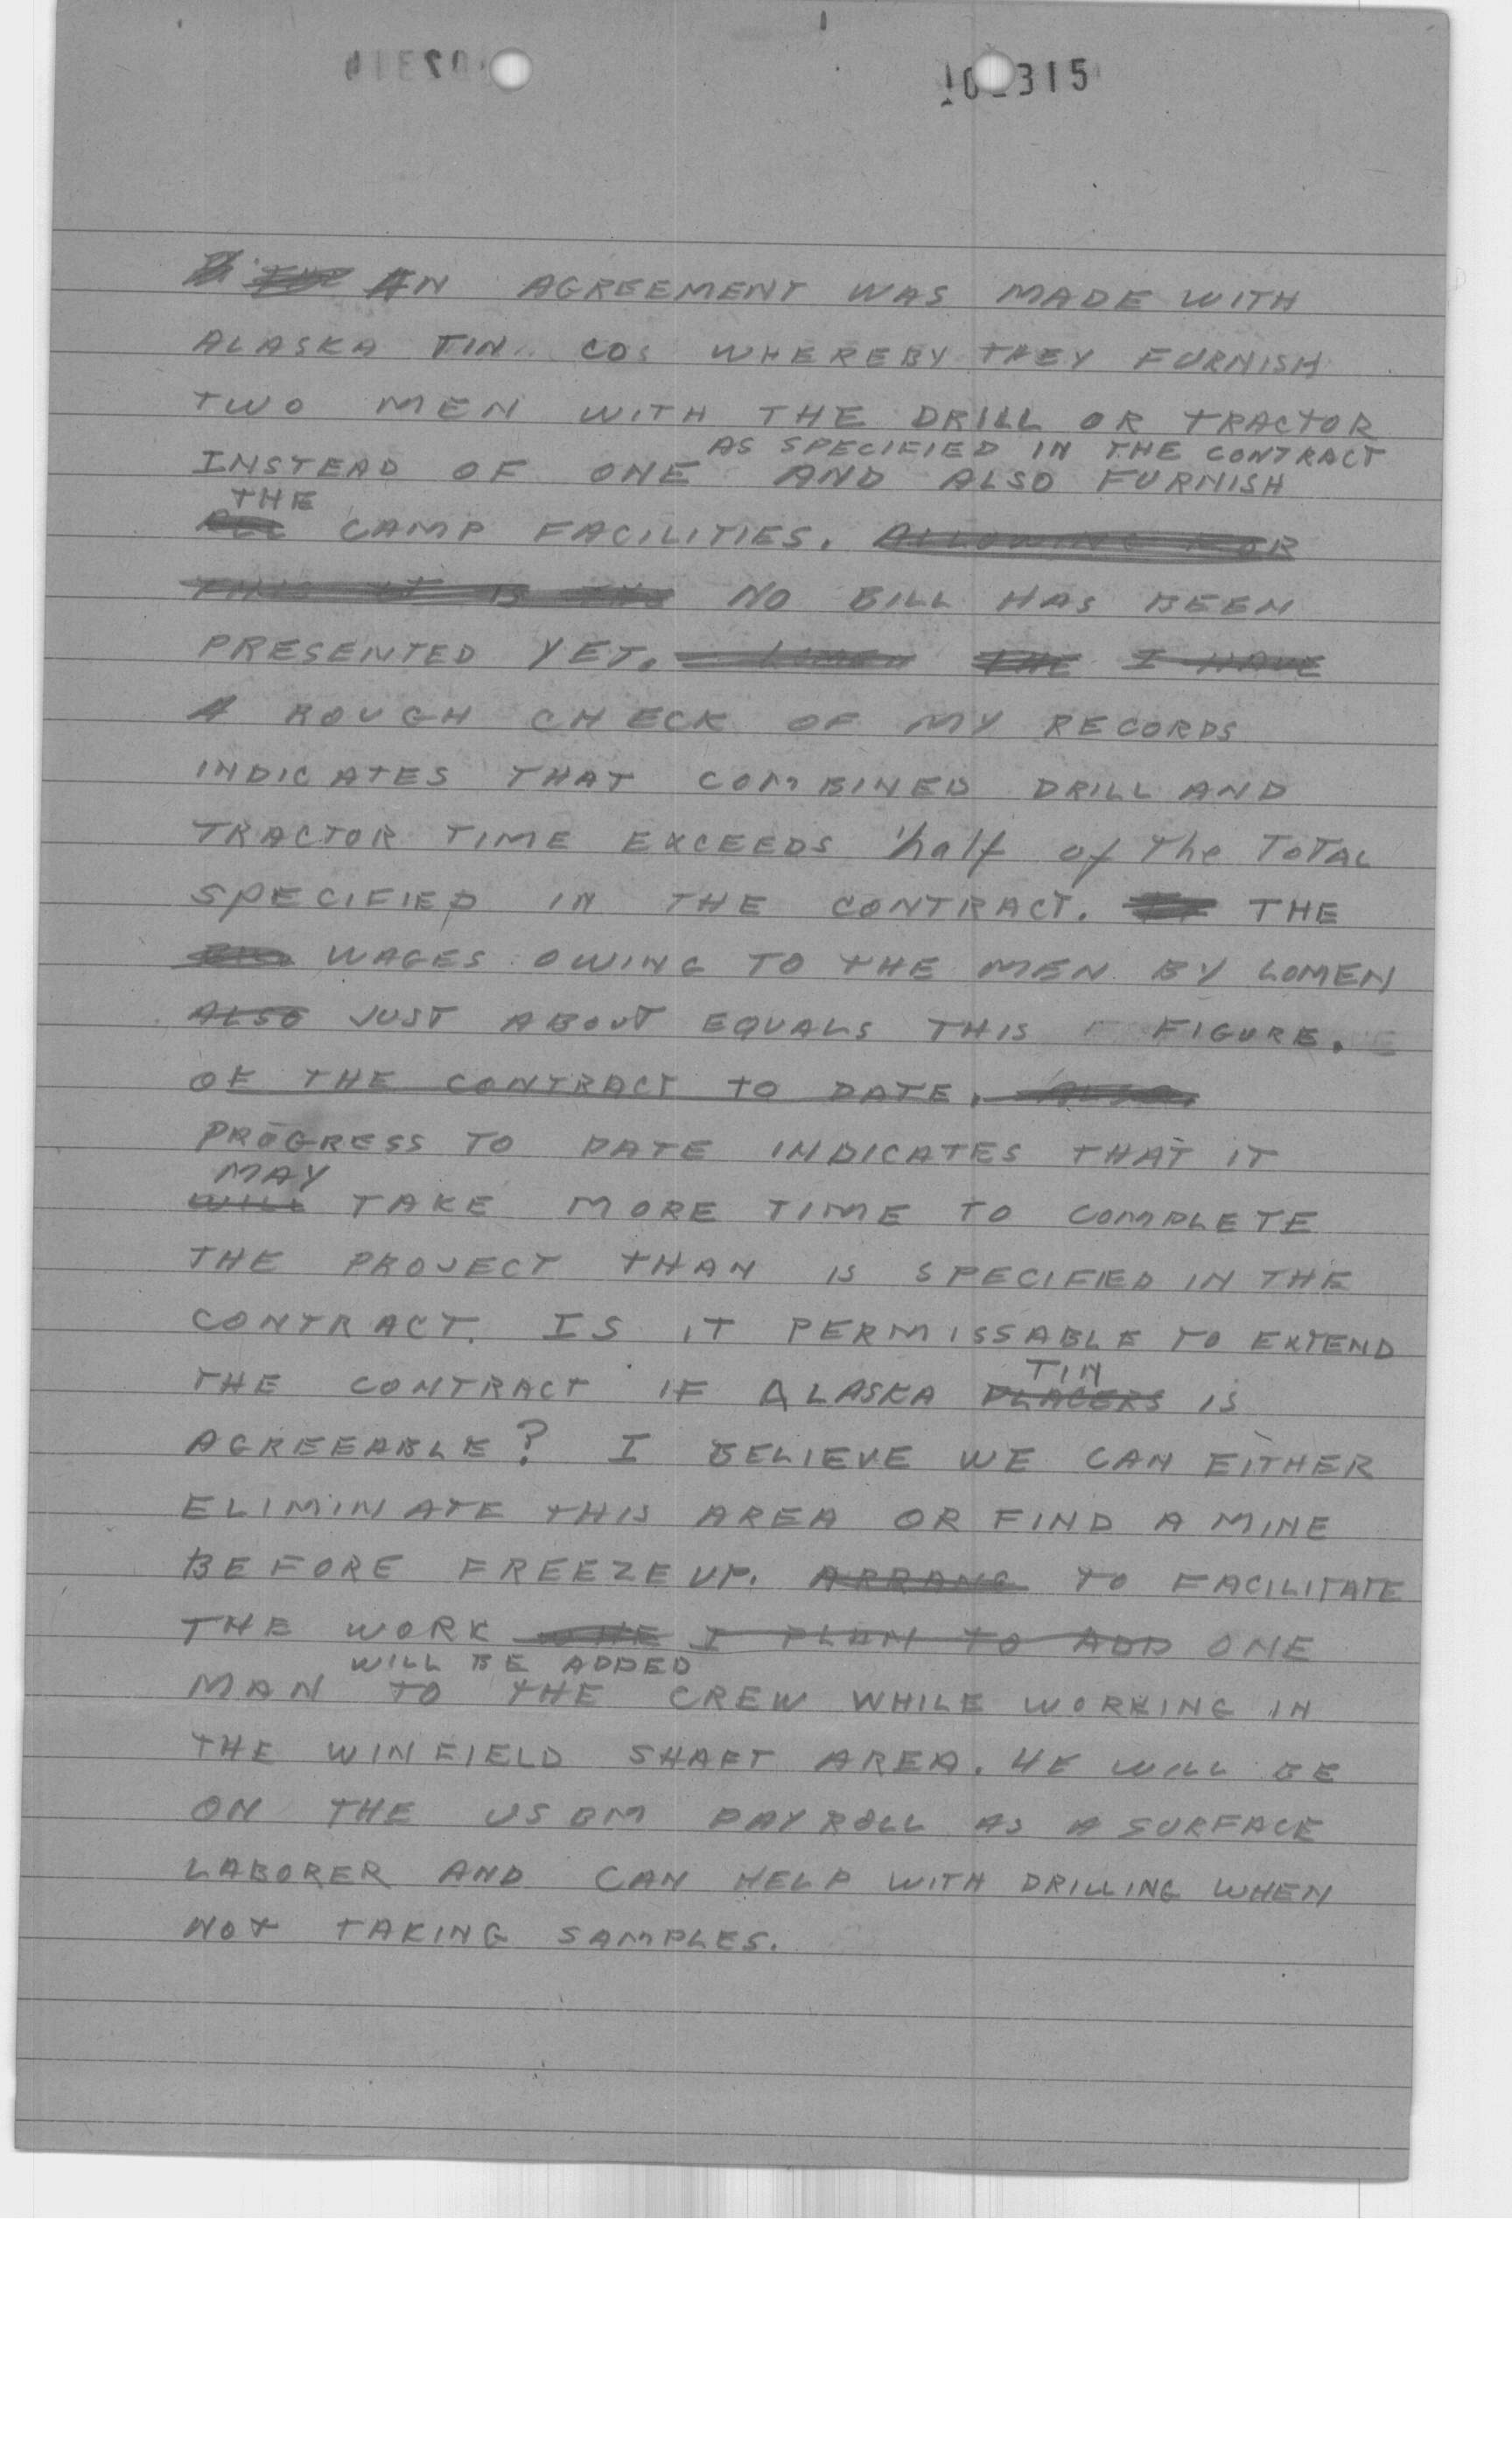 315
AN AGREEMENT WAS MADE WITH
ALASKA TIN COS WHEREBY THEY FURNISH
TWO MEN WITH THE DRILL OR TRACTOR
AS SPECIFIED IN THE CONTRACT
INSTEAD OF ONE AND ALSO FURNISH
THE
CAMP FACILITIES. ALLOWING FOR
THIS IT IS NO BILL HAS BEEN
PRESENTED YET. LOMEN THE I HAVE
A ROUGH CHECK OF MY RECORDS
INDICATES THAT COMBINED DRILL AND
TRACTOR TIME EXCEEDS half of The TOTAL
SPECIFIED IN THE CONTRACT. THE
WAGES OWING TO THE MEN BY LOMEN
ALSO JUST ABOUT EQUALS THIS FIGURE.
OF THE CONTRACT TO DATE. ALSO
PROGRESS TO DATE INDICATES THAT IT
MAY
WILL TAKE MORE TIME TO COMPLETE
THE PROJECT THAN IS SPECIFIED IN THE
CONTRACT. IS IT PERMISSABLE TO EXTEND
TIN
THE CONTRACT IF ALASKA PLACERS IS
AGREEABLE? I BELIEVE WE CAN EITHER
ELIMINATE THIS AREA OR FIND A MINE
BEFORE FREEZEUP. ARRANG TO FACILITATE
THE WORK I PLAN TO ADD ONE
WILL BE ADDED
MAN TO THE CREW WHILE WORKING IN
THE WINFIELD SHAFT AREA. HE WILL BE
ON THE USBM PAYROLL AS A SURFACE
LABORER AND CAN HELP WITH DRILLING WHEN
NOT TAKING SAMPLES.